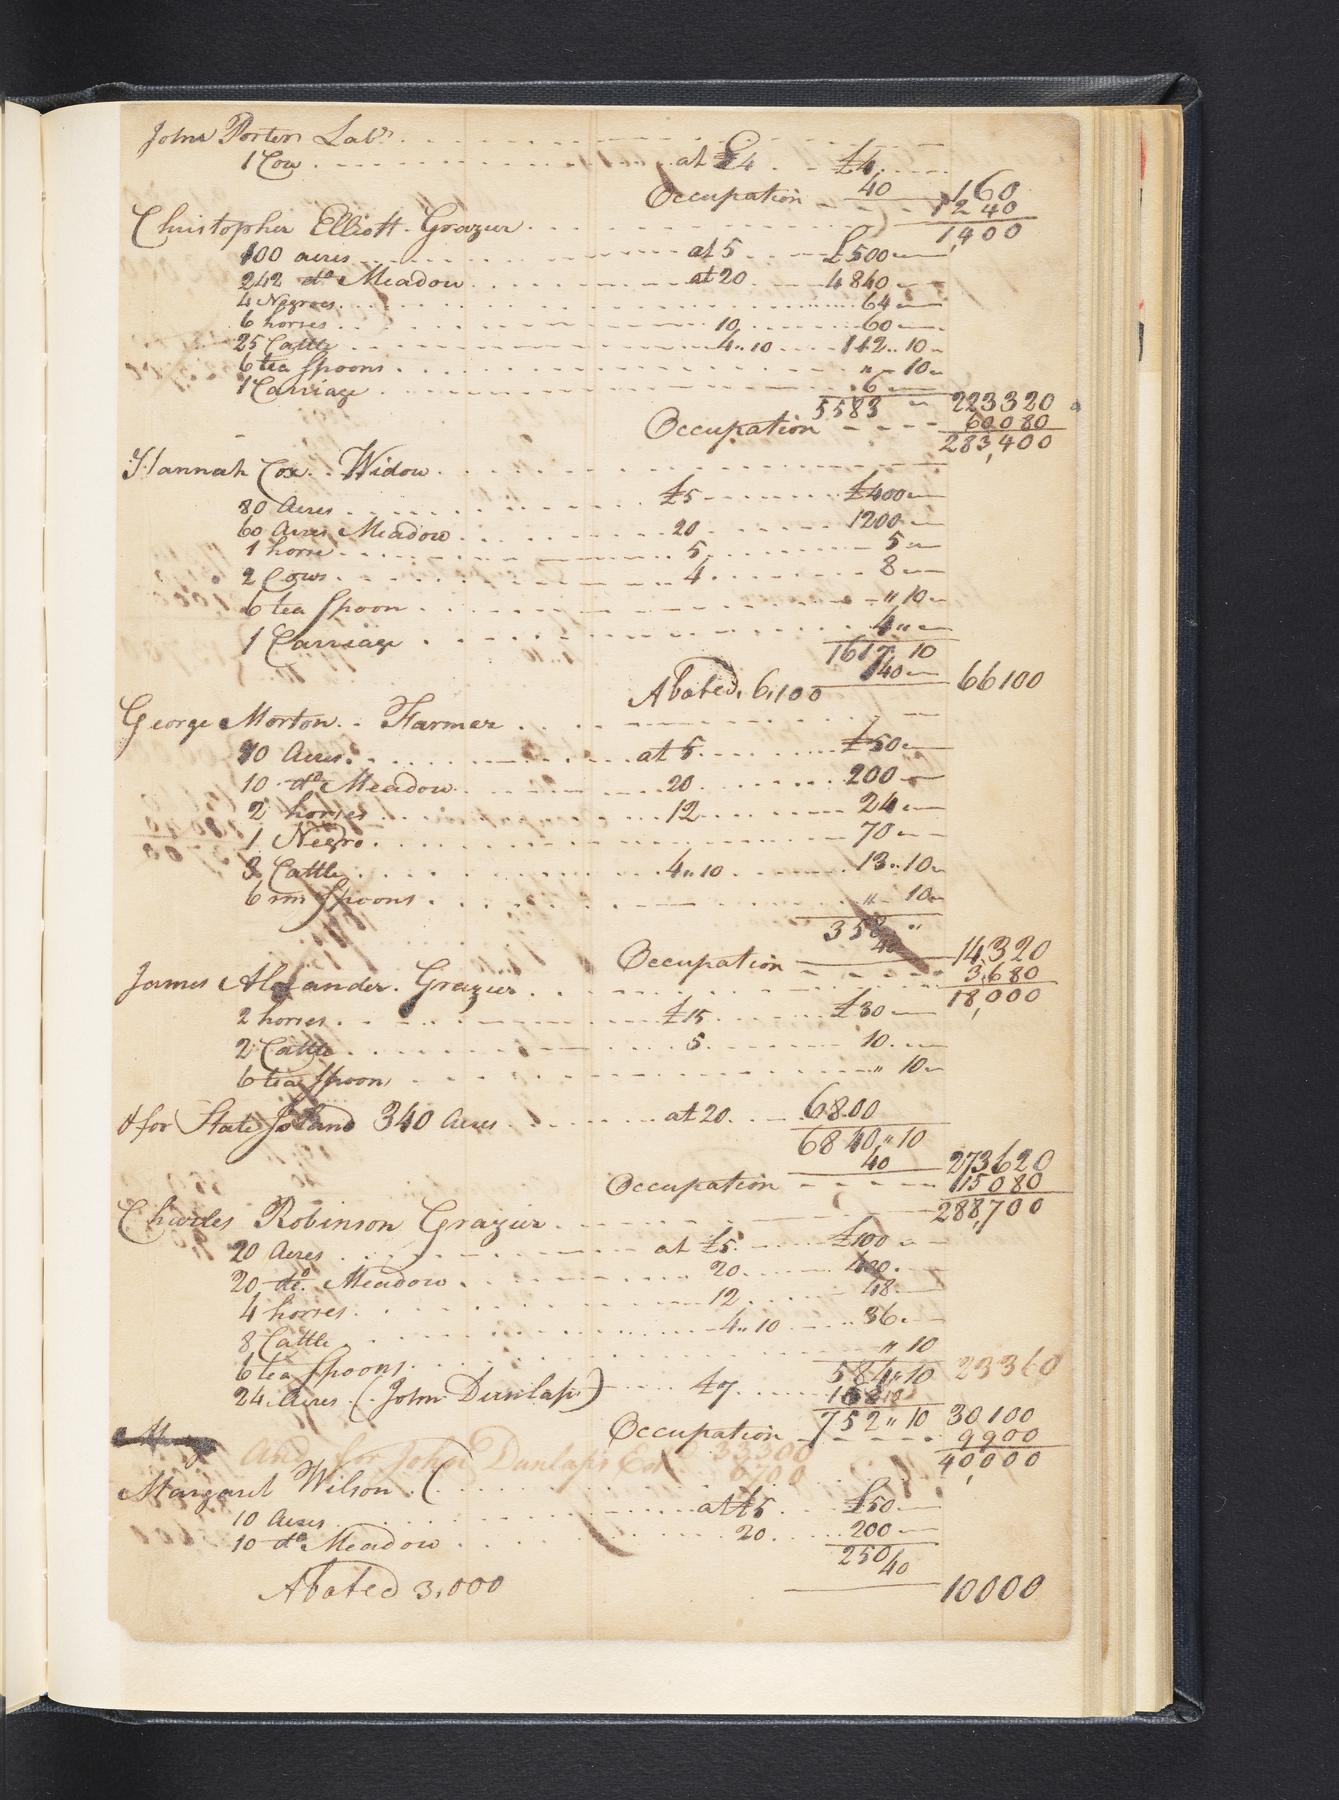 John Porter Labr.
1 Cow at £4 £4
40 160
Occupation 1240
1,400
Christopher Elliott. Grazier
100 acres at 5 £500
242 do Meadow at 20 4840
4 Negroes 64
6 horses 10 60
25 Cattle 4,,10 112,,10
6 tea Spoons ,, 10
1 Carriage 6
5583 223320
Occupation 60080
283,400
Hannah Cox. Widow
80 Acres £5 £400
60 Acres Meadow 20 1200
1 horse 5 5
2 Cows 4 8
6 tea Spoon ,, 10
1 Carriage 4,,
1617,, 10
40 66100
Abated, 6,100
George Morton. Farmer
10 Acres at 5 £50
10 do Meadow 20 200
2 horses 12 24
1 Negro 70
3 Cattle 4,,10 13,,10
6 Spoons ,, 10
358 ,,
40 14,320
Occupation 3,680
18,000
James Alexander. Grazier
2 horses £15 £30
2 Cattle 5 10
6 tea Spoon ,, 10
& for State Island 340 Acres at 20 6800
6840,,10
40 273620
Occupation 15080
288,700
Charles Robinson Grazier
20 Acres at £5 £100
20 do. Meadow 20 400
4 horses 12 48
8 Cattle 4,,10 36
6 tea Spoons ,, 10
584,,10 23360
24 Acres (John Dunlap) £7 168
752,,10 30100
Occupation 9900
40,000
And for John Dunlaps Est 33300
6700
Margaret Wilson
10 Acres at £5 £50
10 do Meadow 20 200
250
40
10000
Abated 3,000